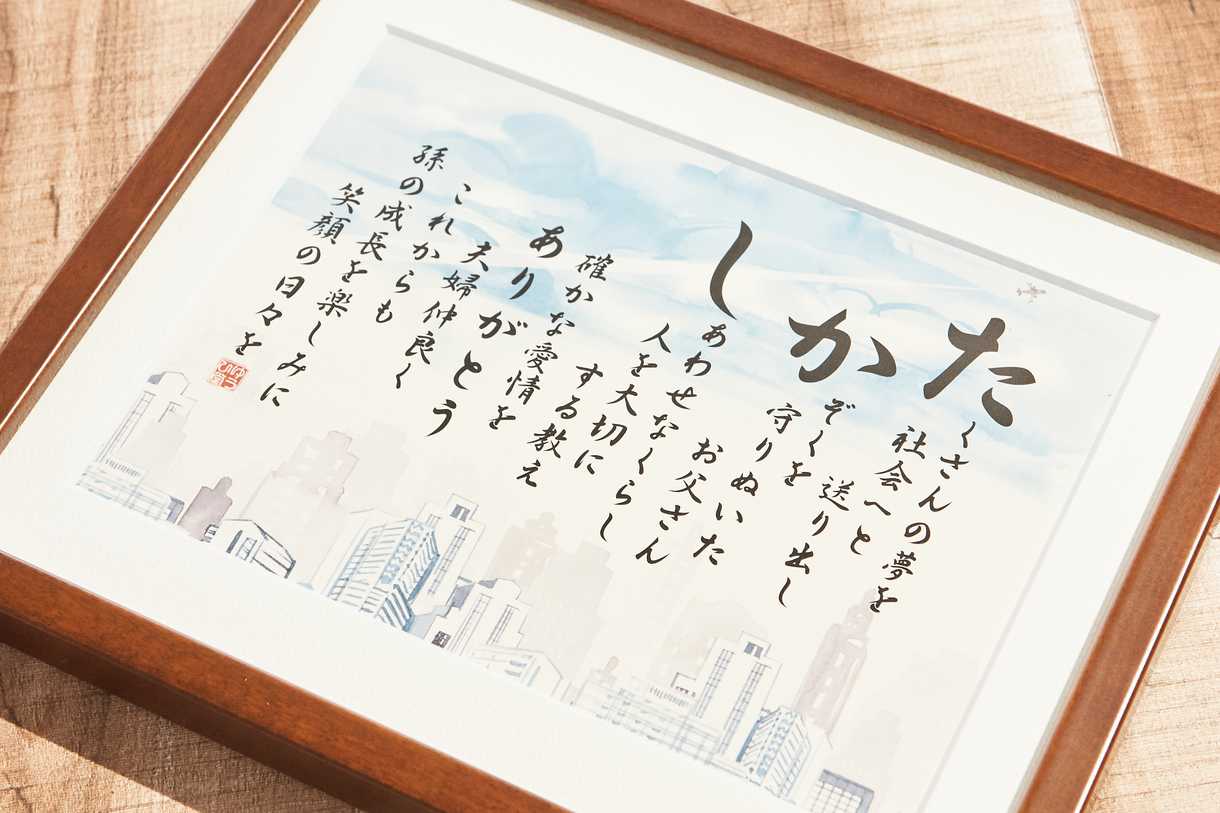 たくさんの夢を
社会へと
送り出し
かぞくを
守りぬいた
お父さん
しあわせなくらし
人を大切に
する教え
確かな愛情を
ありがとう
これからも
夫婦仲良く
孫の成長を楽しみに
笑顔の日々を